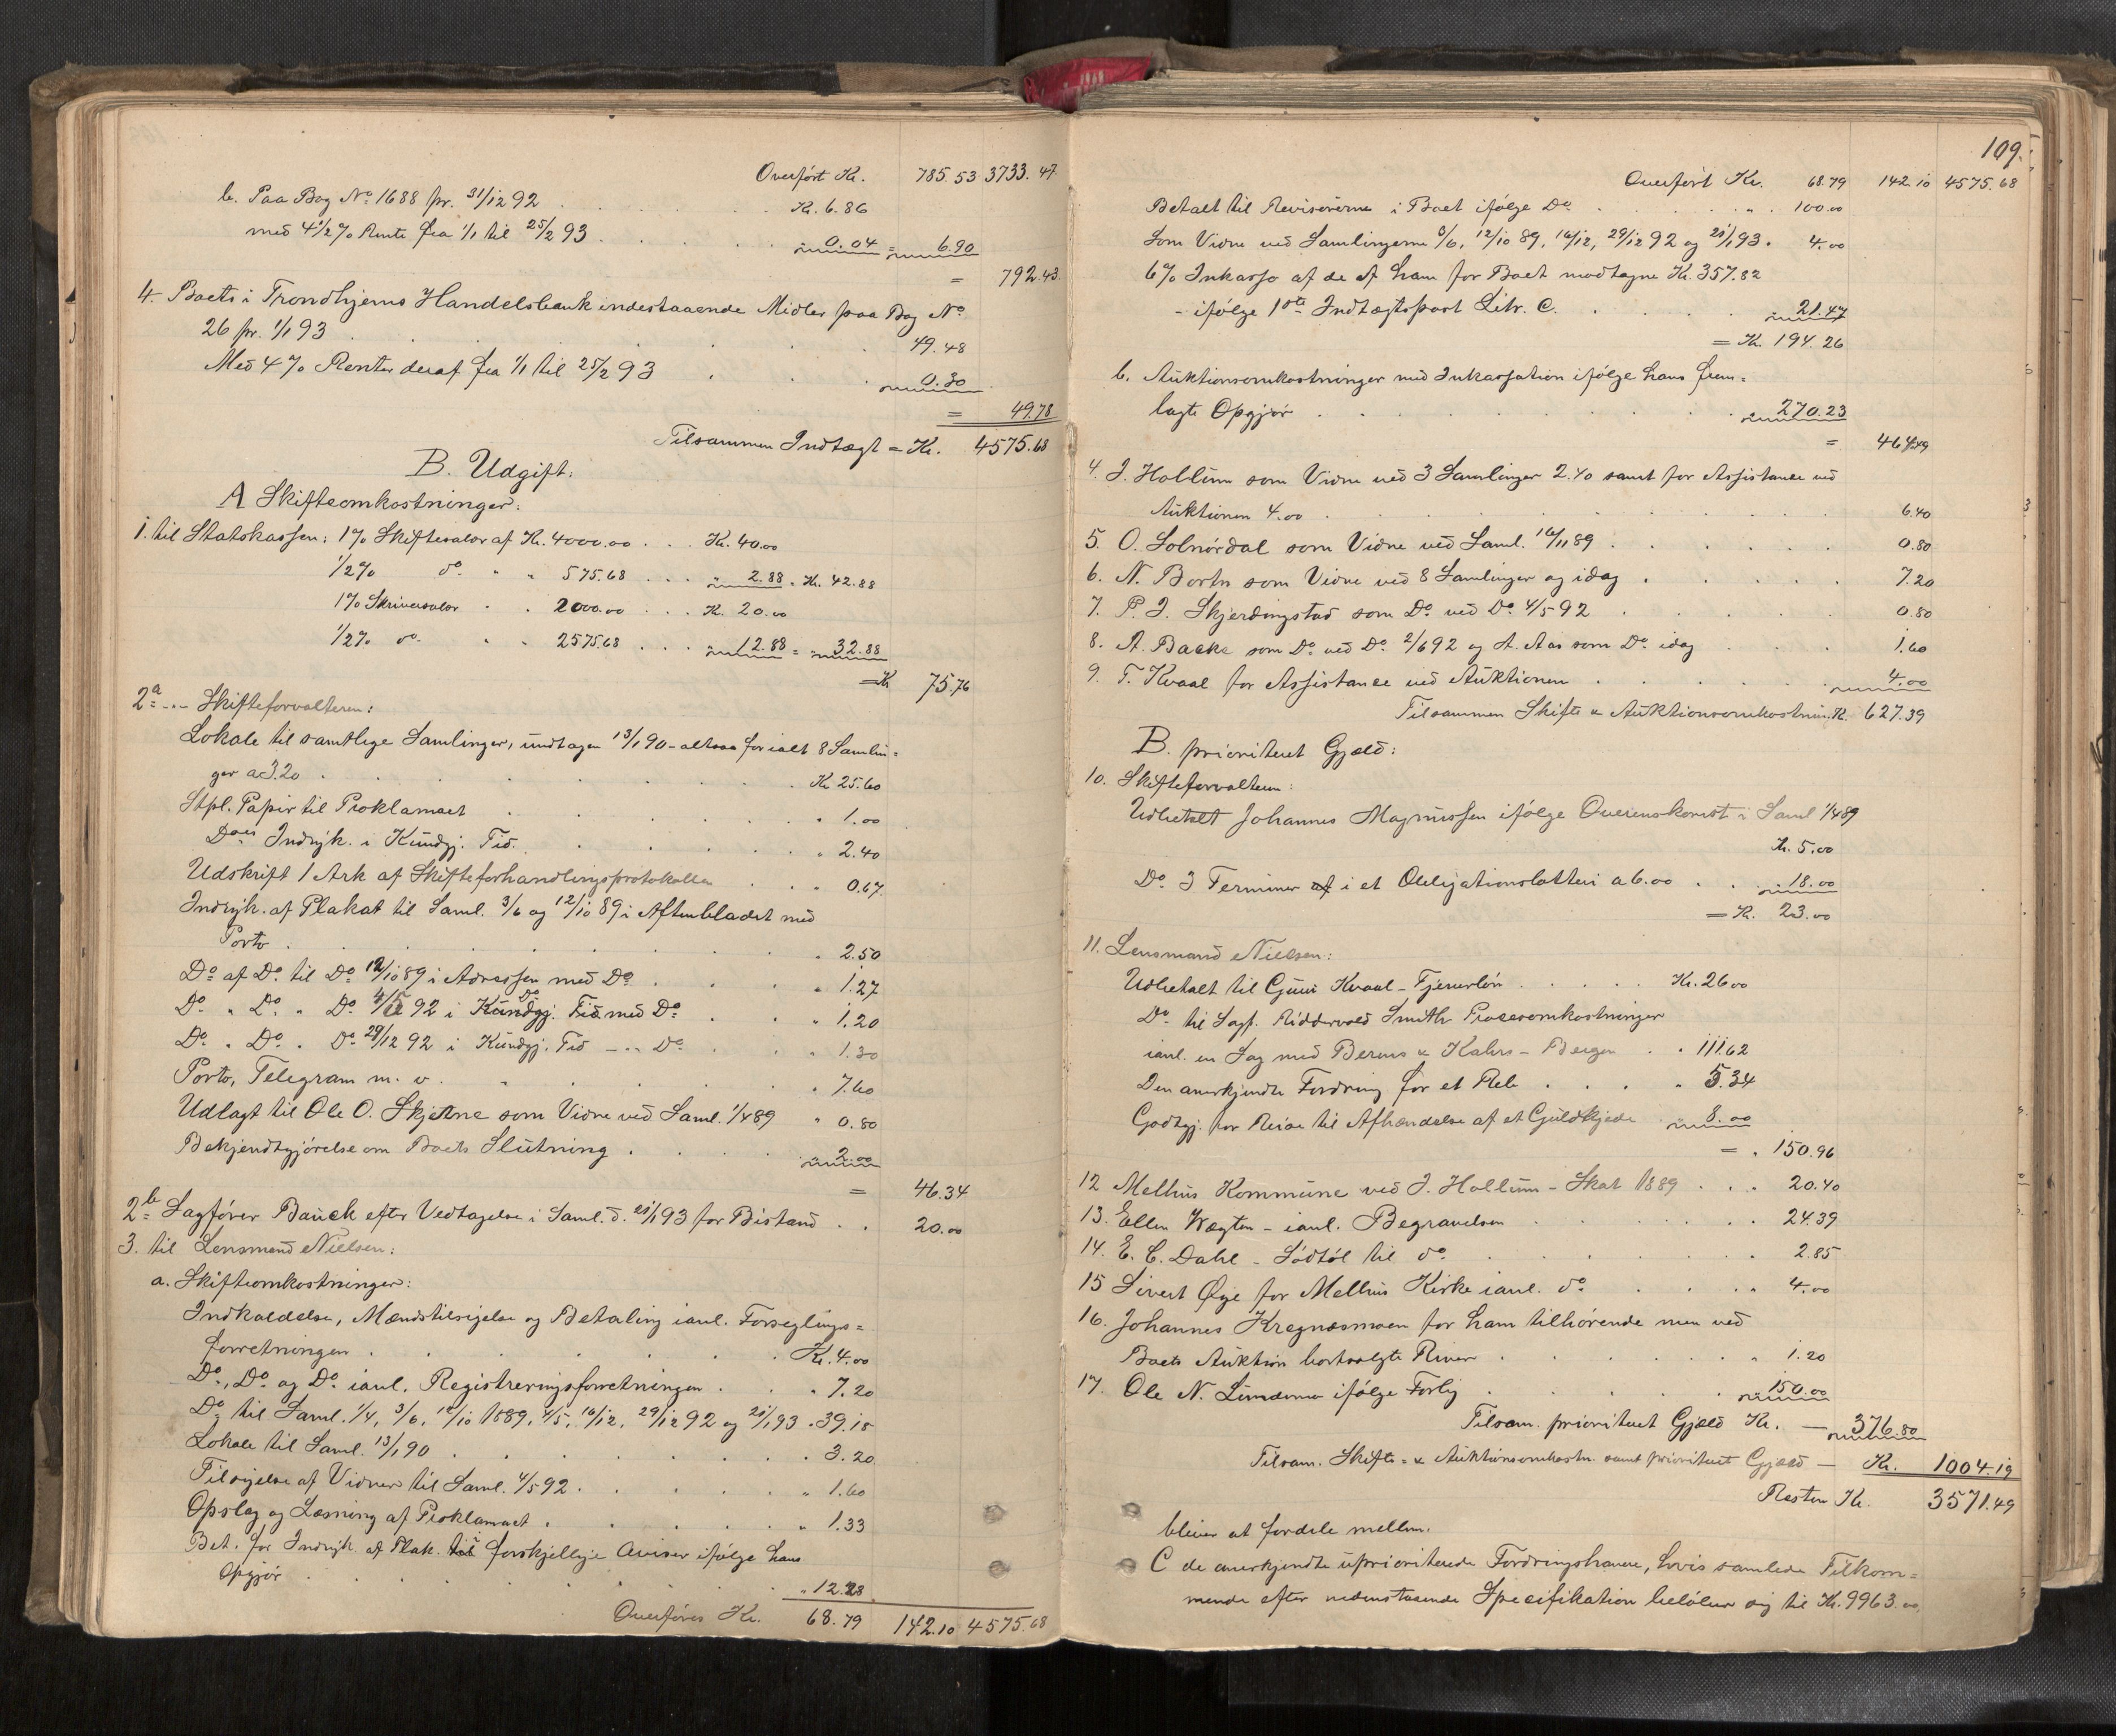 Overført Kr. 785.53 3733.47
b. Paa Bog No 1688 pr. 31/12 92 . . . . Kr. 6.86
med 4 1/2 % Rente fra 1/1 til 25/2 93 . . . . " 0.04 = " 6.90
= 792.43
4. Boets i Trondhjems Handelsbank indestaaende Midler paa Bog No
26 pr. 1/1 93 . . . . 49.48
Med 4 % Renter deraf fra 1/1 til 25/2 93 . . . " 0.30
= 49.78
Tilsammen Indtægt = Kr. 4575.68
B. Udgift:
A Skifteomkostninger:
1. til Statskassen: 1 % Skiftesalær af Kr. 4000.00 . . . Kr. 40.00
1/2 % do. " " 575.68 . . . " 2.88 = Kr. 42.88
1 % Skriversalær " " 2000.00 . . . Kr. 20.00
1/2 % do. " " 2575.68 . . . " 12.88 = " 32.88
= Kr 75.76
2a -"- Skifteforvalteren:
Lokale til samtlige Samlinger, undtagen 13/1 90 - altsaa for ialt 8 Samlin=
ger a 3.20 . . . . Kr 25.60
Stpl. Papir til Proklamaet . . . . " 1.00
Does Indryk. i Kundgj. Tid. . . . . " 2.40
Udskrift 1 Ark af Skifteforhandlingsprotokollen . . . " 0.67
Indryk. af Plakat til Saml. 3/6 og 12/10 89 i Aftenbladet med
Porto . . . . " 2.50
Do af Do. til Do 12/10 89 i Adressen med Do . . . . " 1.27
Do " Do. " Do. 4/5 92 i Kundgj. Tid med Do . . " 1.20
Do " Do. " Do 29/12 92 i Kundgj. Tid -"- Do . . " 1.30
Porto, Telegram m. v. . . . . " 7.60
Udlagt til Ole O. Skjetne som Vidne ved Saml. 1/4 89 " 0.80
Bekjendtgjørelse om Boets Slutning . . . . " 2.00
= 46.34
2b Sagfører Bauck efter Vedtagelse i Saml. d. 21/1 93 for Bistand . . 20.00
3. til Lensmand Nielsen:
a. Skifteomkostninger:
Indkaldelse, Mændstilsigelse og Betaling ianl. Forseglings=
forretningen . . . . Kr. 4.00
Do, Do og Do ianl. Registreringsforretningen . . . " 7.20
Do til Saml. 1/4, 3/6, 12/10 1889, 4/5, 16/12, 29/12 92 og 21/1 93 " 39.18
Lokale til Saml. 13/1 90 . . . . " 3.20
Tilsigelse af Vidner til Saml. 4/5 92 . . . . " 1.60
Opslag og Læsning af Proklamaet . . . . " 1.33
Bet. for Indryk. af Plak. i forskjellige Aviser ifølge hans
Opgjør . . . . " 12.28
Overføres Kr. 68.79 142.10 4575.68
109.
Overført Kr. 68.79 142.10 4575.68
Betalt til Revisorerne i Boet ifølge Do . . . . " 100.00
Som Vidne ved Samlingerne 3/6, 12/10 89, 16/12, 29/12 92 og 21/1 93 . 4.00
6 % Inkasso af de af ham for Boet modtagne Kr. 357.82
- ifølge 1ste Indtægtspost Litr. C. . . . . " 21.47
= Kr. 194.26
b. Auktionsomkostninger med Inkassation ifølge hans frem=
lagte Opgjør . . . . " 270.23
= 464.49
4. J. Hollum som Vidne ved 3 Samlinger 2.40 samt for Assistance ved
Auktionen 4.00 . . . . 6.40
5. O. Solnørdal som Vidne ved Saml. 16/11 89 . . . . 0.80
6. N. Borten som Vidne ved 8 Samlinger og idag . . . . 7.20
7. P. J. Skjerdingstad som Do ved Do 4/5 92 . . . . 0.80
8. A. Backe som Do ved Do 2/6 92 og A. Aas som Do idag . . . 1.60
9. T. Kvaal for Assistance ved Auktionen . . . . " 4.00
Tilsammen Skifte & Auktionsomkostnin. Kr. 627.39
B. prioriteret Gjæld:
10. Skifteforvalteren:
Udbetalt Johannes Magnussen ifølge Overenskomst i Saml 1/4 89
Kr. 5.00
Do 3 Terminer i et Obligationslotteri a 6.00 . . " 18.00
= Kr. 23.00
11. Lensmand Nielsen:
Udbetalt til Guri Kvaal - Tjenerløn . . . . Kr. 26.00
Do til Sagf. Riddervold Smith Procesomkostninger
ianl. en Sag med Berens & Kahrs - Bergen . . " 111.62
Den anerkjendte Fordring for et Reb . . . . " 5.34
Godtgj. for Reise til Afhændelse af et Guldkjede . " 8.00
= " 150.96
12 Melhus Kommune ved J. Hollum - Skat 1889 . . " 20.40
13. Ellen Vægten - ianl. Begravelsen . . . . " 24.39
14. E. C. Dahl - Sødtøl til do . . . . " 2.85
15 Sivert Øye for Melhus Kirke ianl. do . . . . " 4.00
16. Johannes Kregnæsmoen for ham tilhørende men ved
Boets Auktion bortsolgte River . . . . " 1.20
17. Ole N. Limdemo ifølge Forlig . . . . " 150.00
Tilsam. prioriteret Gjæld Kr. — 376.80
Tilsam. Skifte- & Auktionsomkostn. samt prioriteret Gjæld — Kr. 1004.19
Resten Kr. 3571.49
bliver at fordele mellem:
C de anerkjendte uprioriterede Fordringshavere, hvis samlede Tilkom=
mende efter nedenstaaende Specifikation beløber sig til Kr. 9963.00